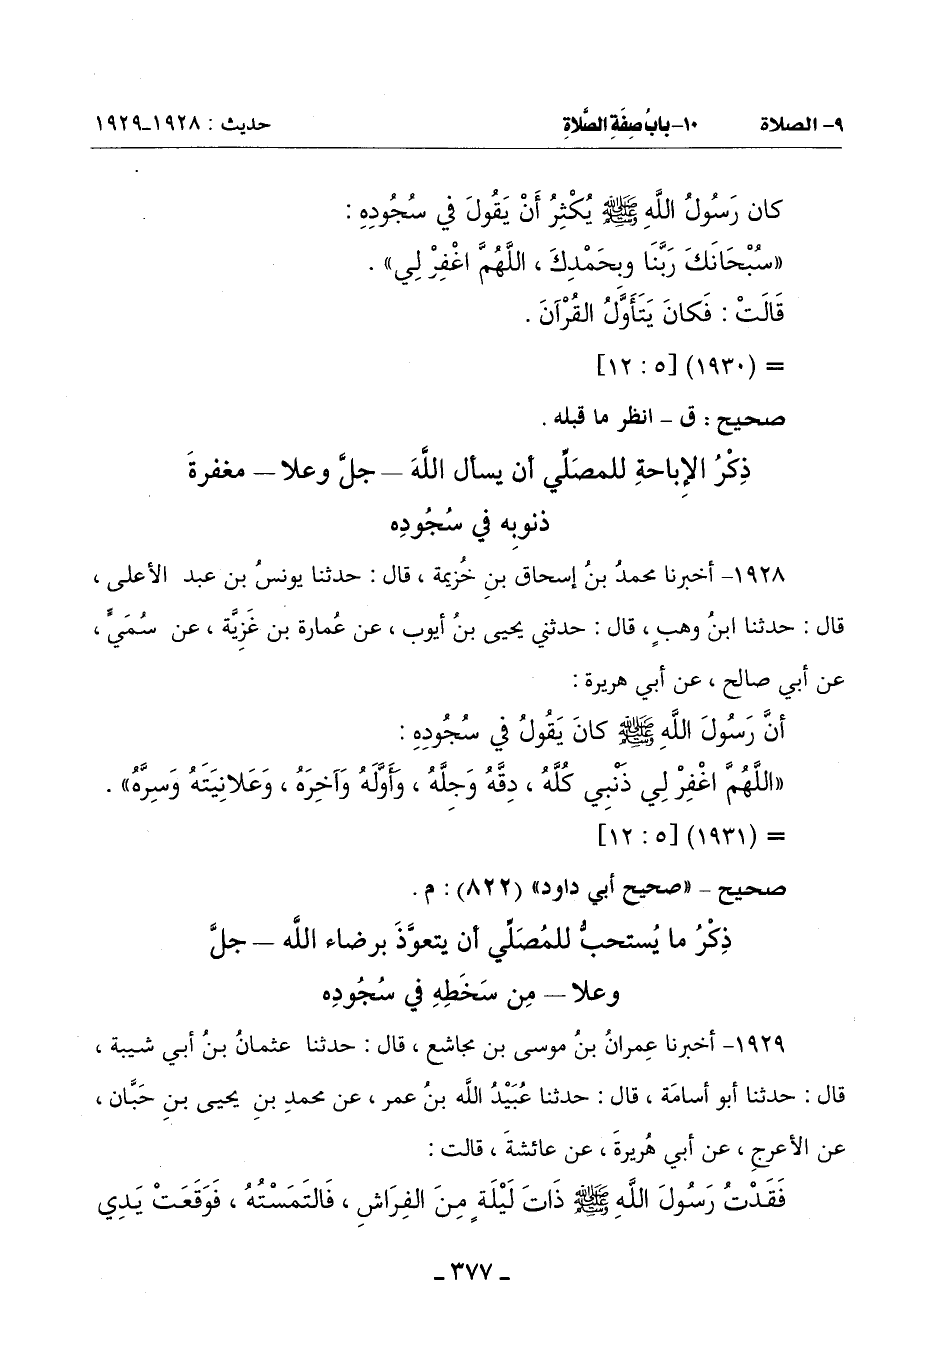 ٩- الصلاة ١٠- بابُ صِفَةِ الصَّلاةِ حديث : ١٩٢٨-١٩٢٩
كان رَسُولُ اللَّهِ ﷺ يُكْثِرُ أَنْ يَقُولَ في سُجُودِهِ :
«سُبْحَانَكَ رَبَّنَا وبِحَمْدِكَ ، اللَّهُمَّ اغْفِرْ لِي» .
قَالَتْ : فَكانَ يَتَأَوَّلُ القُرْآنَ .
= (١٩٣٠) [٥ : ١٢]
صحيح : ق - انظر ما قبله .
ذِكْرُ الإِباحةِ للمصَلِّي أن يسأل اللَّهَ – جلَّ وعلا – مغفرةَ
ذنوبِه في سُجُودِه
١٩٢٨- أخبرنا محمدُ بنُ إسحاق بنِ خُزيمة ، قال : حدثنا يونسُ بن عبد الأعلى ،
قال : حدثنا ابنُ وهبٍ ، قال : حدثني يحيى بنُ أيوب ، عن عُمارة بن غَزِيَّة ، عن سُمَيٍّ ،
عن أبي صالح ، عن أبي هريرة :
أنَّ رَسُولَ اللَّهِ ﷺ كانَ يَقُولُ في سُجُودِهِ :
«اللَّهُمَّ اغْفِرْ لِي ذَنْبِي كُلَّهُ ، دِقَّهُ وَجِلَّهُ ، وَأَوَّلَهُ وَآخِرَهُ ، وَعَلانِيَتَهُ وَسِرَّهُ» .
= (١٩٣١) [٥ : ١٢]
صحيح - «صحيح أبي داود» (٨٢٢) : م .
ذِكْرُ ما يُستحبُّ للمُصَلِّي أن يتعوَّذَ برضاء اللَّه – جلَّ
وعلا – مِن سَخَطِهِ في سُجُودِه
١٩٢٩- أخبرنا عِمرانُ بنُ موسى بن مجاشع ، قال : حدثنا عثمانُ بنُ أبي شيبة ،
قال : حدثنا أبو أسامَة ، قال : حدثنا عُبَيْدُ اللَّه بنُ عمر ، عن محمدِ بنِ يحيى بنِ حَبَّان ،
عن الأعرجِ ، عن أبي هُريرةَ ، عن عائشةَ ، قالت :
فَقَدْتُ رَسُولَ اللَّهِ ﷺ ذَاتَ لَيْلَةٍ مِنَ الفِرَاشِ ، فَالتَمَسْتُهُ ، فَوَقَعَتْ يَدِي
- ٣٧٧ -